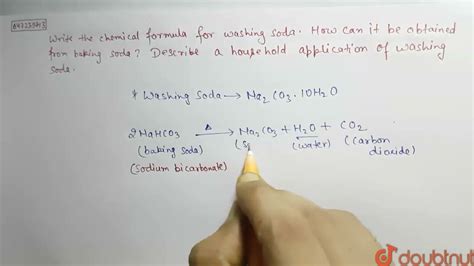 Write the chemical formula for washing soda. How can it be obtained
from baking soda? Describe a household application of washing
soda.
* Washing Soda → Na2CO3.10H2O
2NaHCO3 —Δ→ Na2CO3 + H2O + CO2
(baking soda) (S (water) (carbon
dioxide)
(sodium bicarbonate)
doubtnut